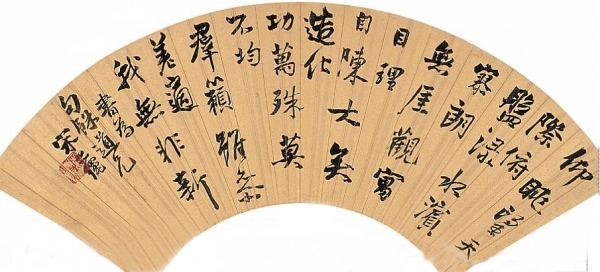 仰眺望天
際俯
盤淥水濱
寥朗
無厓觀寓
目理
自陳大矣
造化
功萬殊莫
不均
羣籟雖參
差適
我無非新
書為道兄
句餘宋